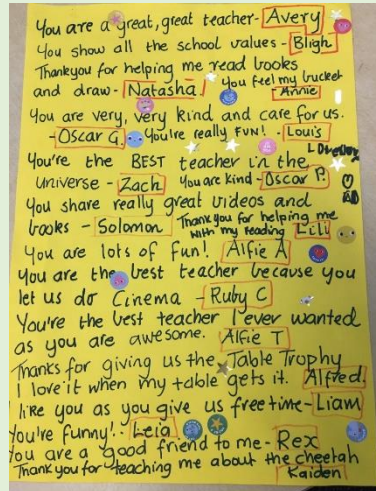 You are a great, great teacher- Avery
You show all the school values - Bligh
Thankyou for helping me read books
and draw- Natasha. You feel my bucket
- Annie
You are very, very kind and care for us.
- Oscar G. You're really FUN! - Louis
You're the BEST teacher in the
universe - Zach You are kind - Oscar P.
You share really great videos and
books - Solomon Thank you for helping me
with my reading Lili
You are lots of fun! Alfie A
You are the best teacher because you
let us do Cinema - Ruby C
You're the best teacher I ever wanted
as you are awesome. Alfie T
Thanks for giving us the Table Trophy
I love it when my table gets it. Alfred.
I like you as you give us free time - Liam
You're funny! - Leia.
You are a good friend to me - Rex
Thank you for teaching me about the cheetah
Kaiden